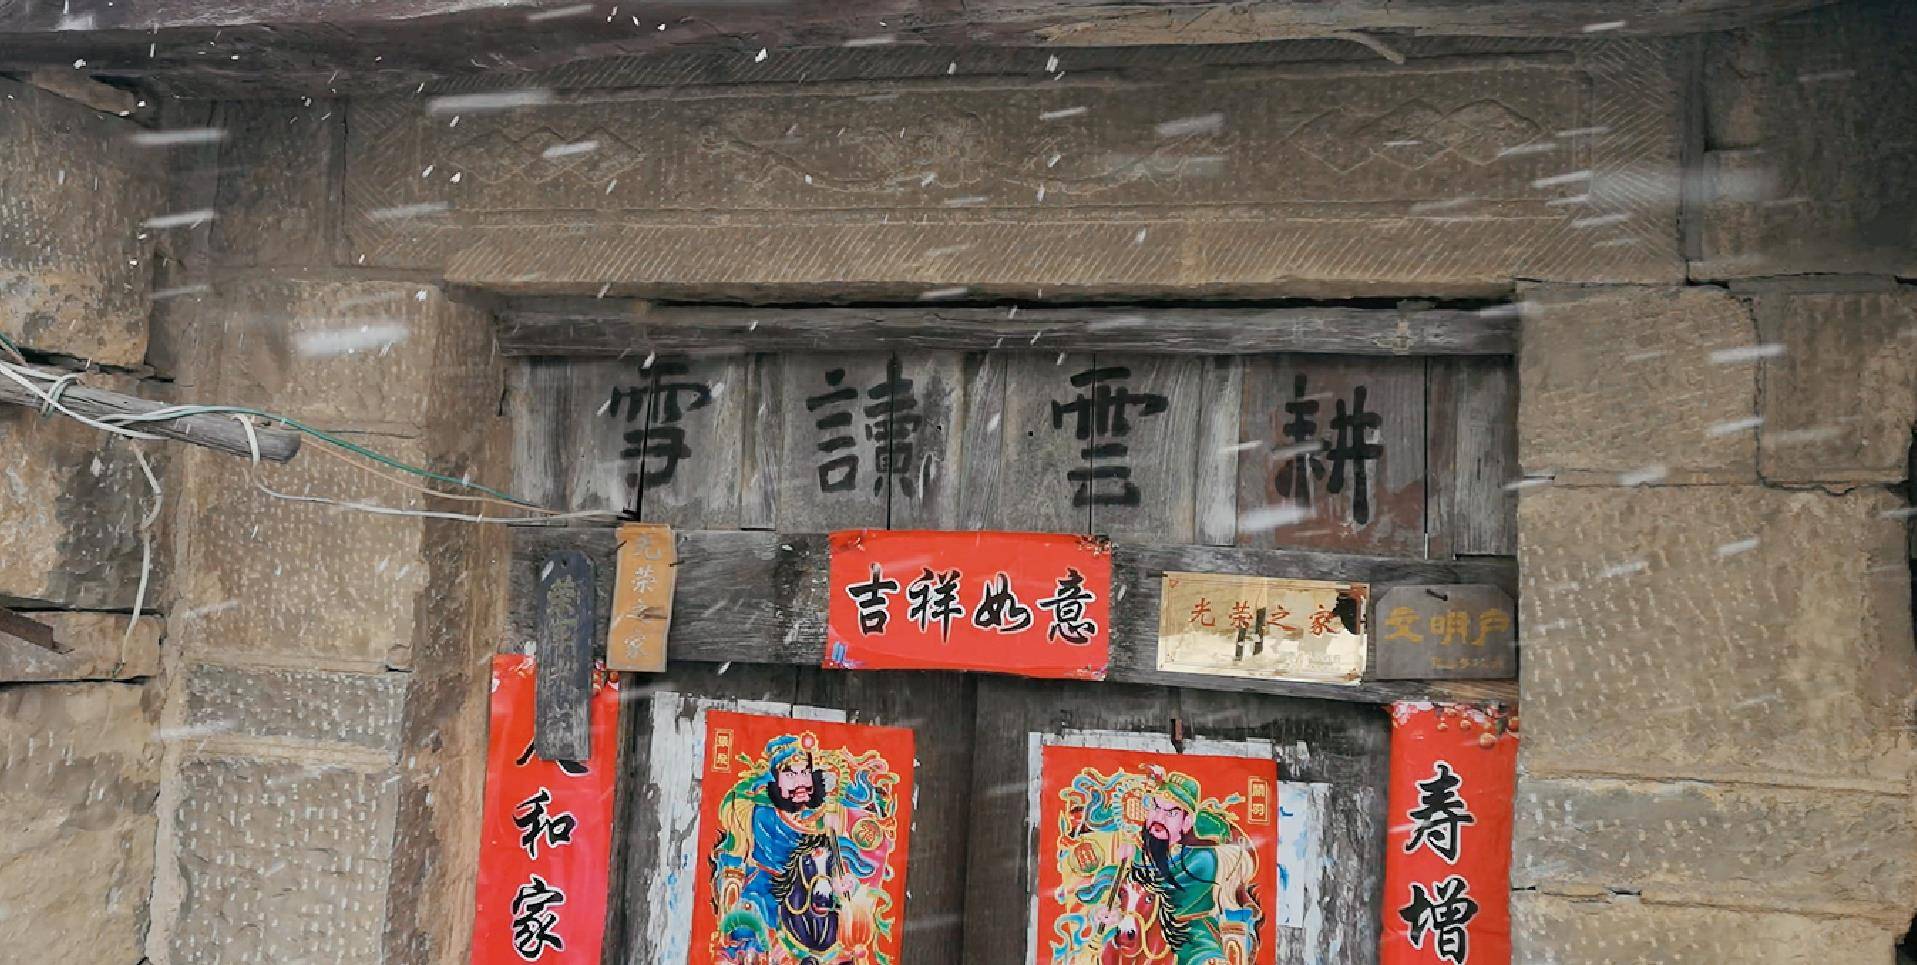 耕雲讀雪
光荣之家
吉祥如意
光荣之家
文明户
寿增
和家